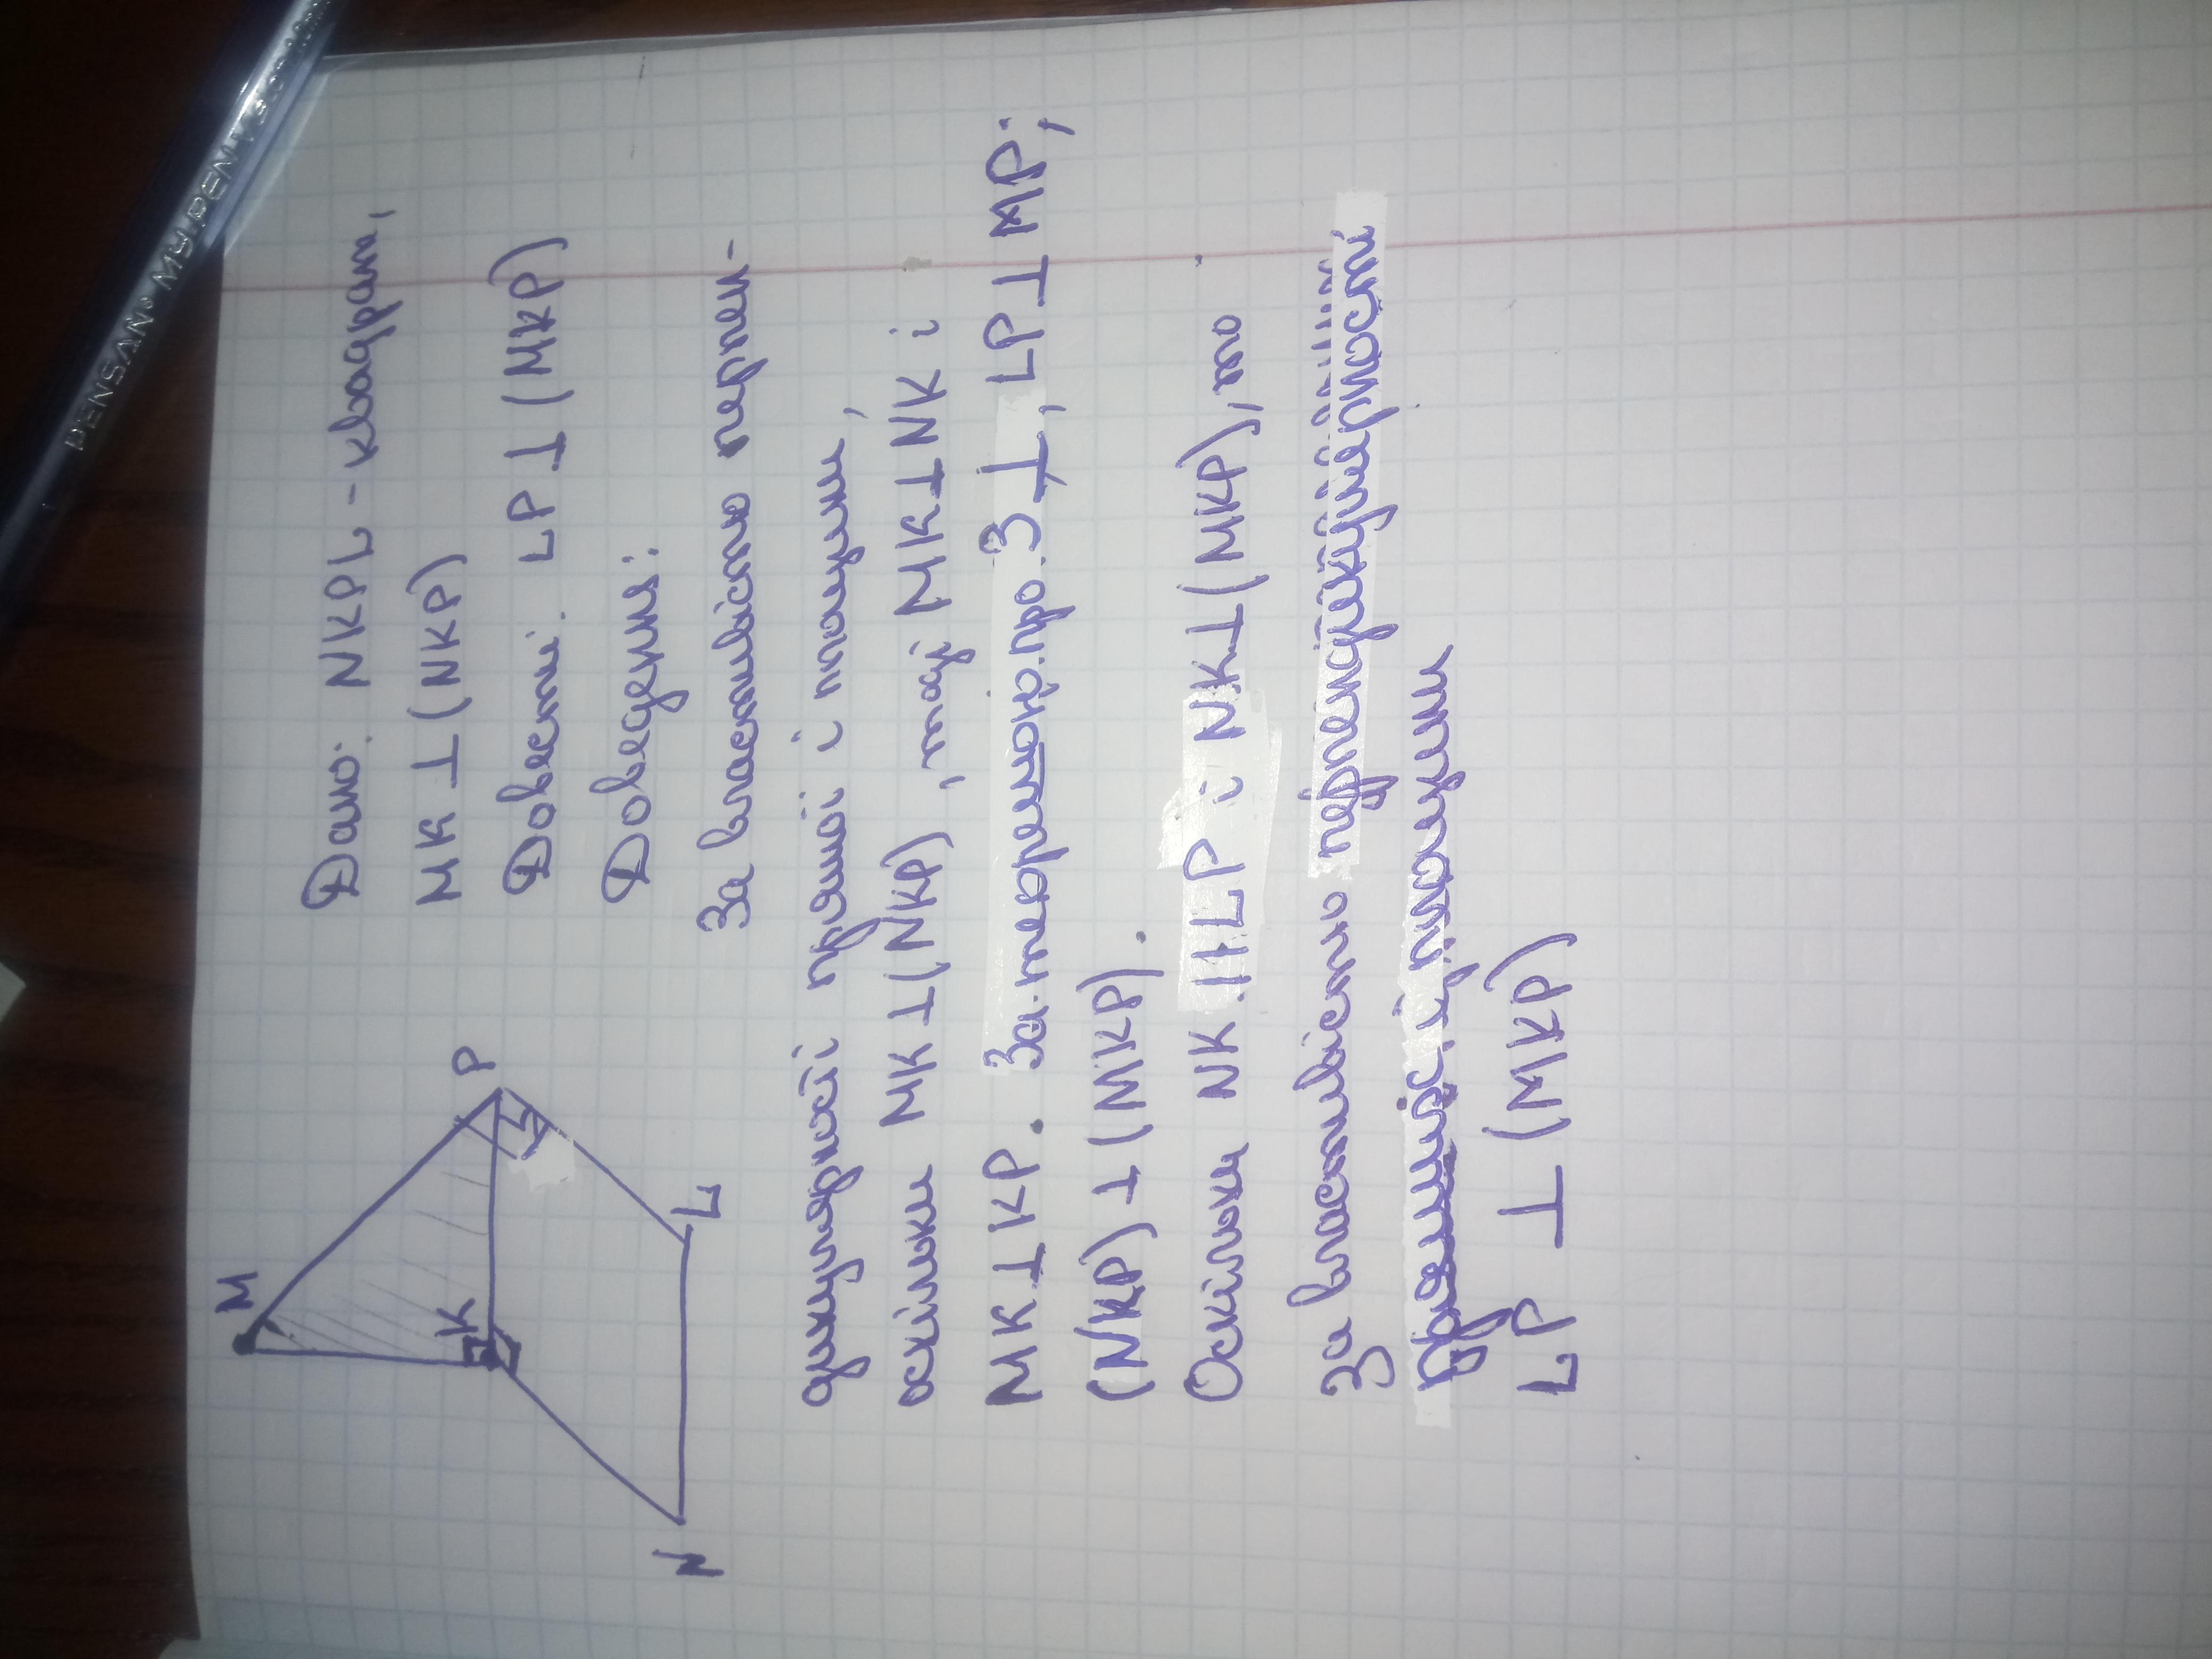 PENSAN° MY PEN
M
P
K
L
N
Дано: NKPL - квадрат,
MK ⊥ (NKP)
Довести: LP ⊥ (MKP)
Доведення:
За властивістю перпен-
дикулярності прямої і площини,
оскільки MK ⊥ (NKP), тоді MK ⊥ NK і
MK ⊥ KP. За теоремою 3 ⊥, LP ⊥ MP;
(NKP) ⊥ (MKP).
Оскільки NK || LP і NK ⊥ (MKP), то
За властивістю перпендикулярності
прямої і площини
LP ⊥ (MKP)